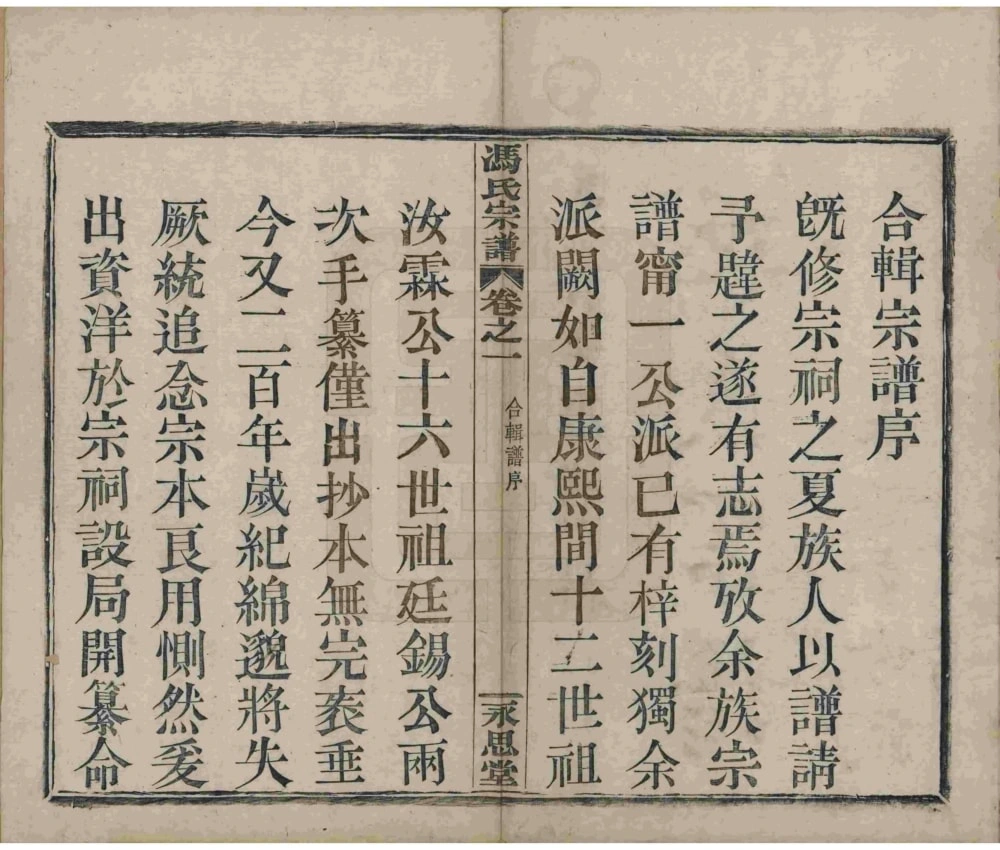 合輯宗譜序
旣修宗祠之夏族人以譜請
予韙之遂有志焉攷余族宗
譜甯一公派已有梓刻獨余
派闕如自康熙間十二世祖
馮氏宗譜 卷之一 合輯譜序 一 永思堂
汝霖公十六世祖廷錫公兩
次手纂僅出抄本無完袠垂
今又二百年歲紀綿邈將失
厥統追念宗本良用惻然爰
出資洋於宗祠設局開纂命